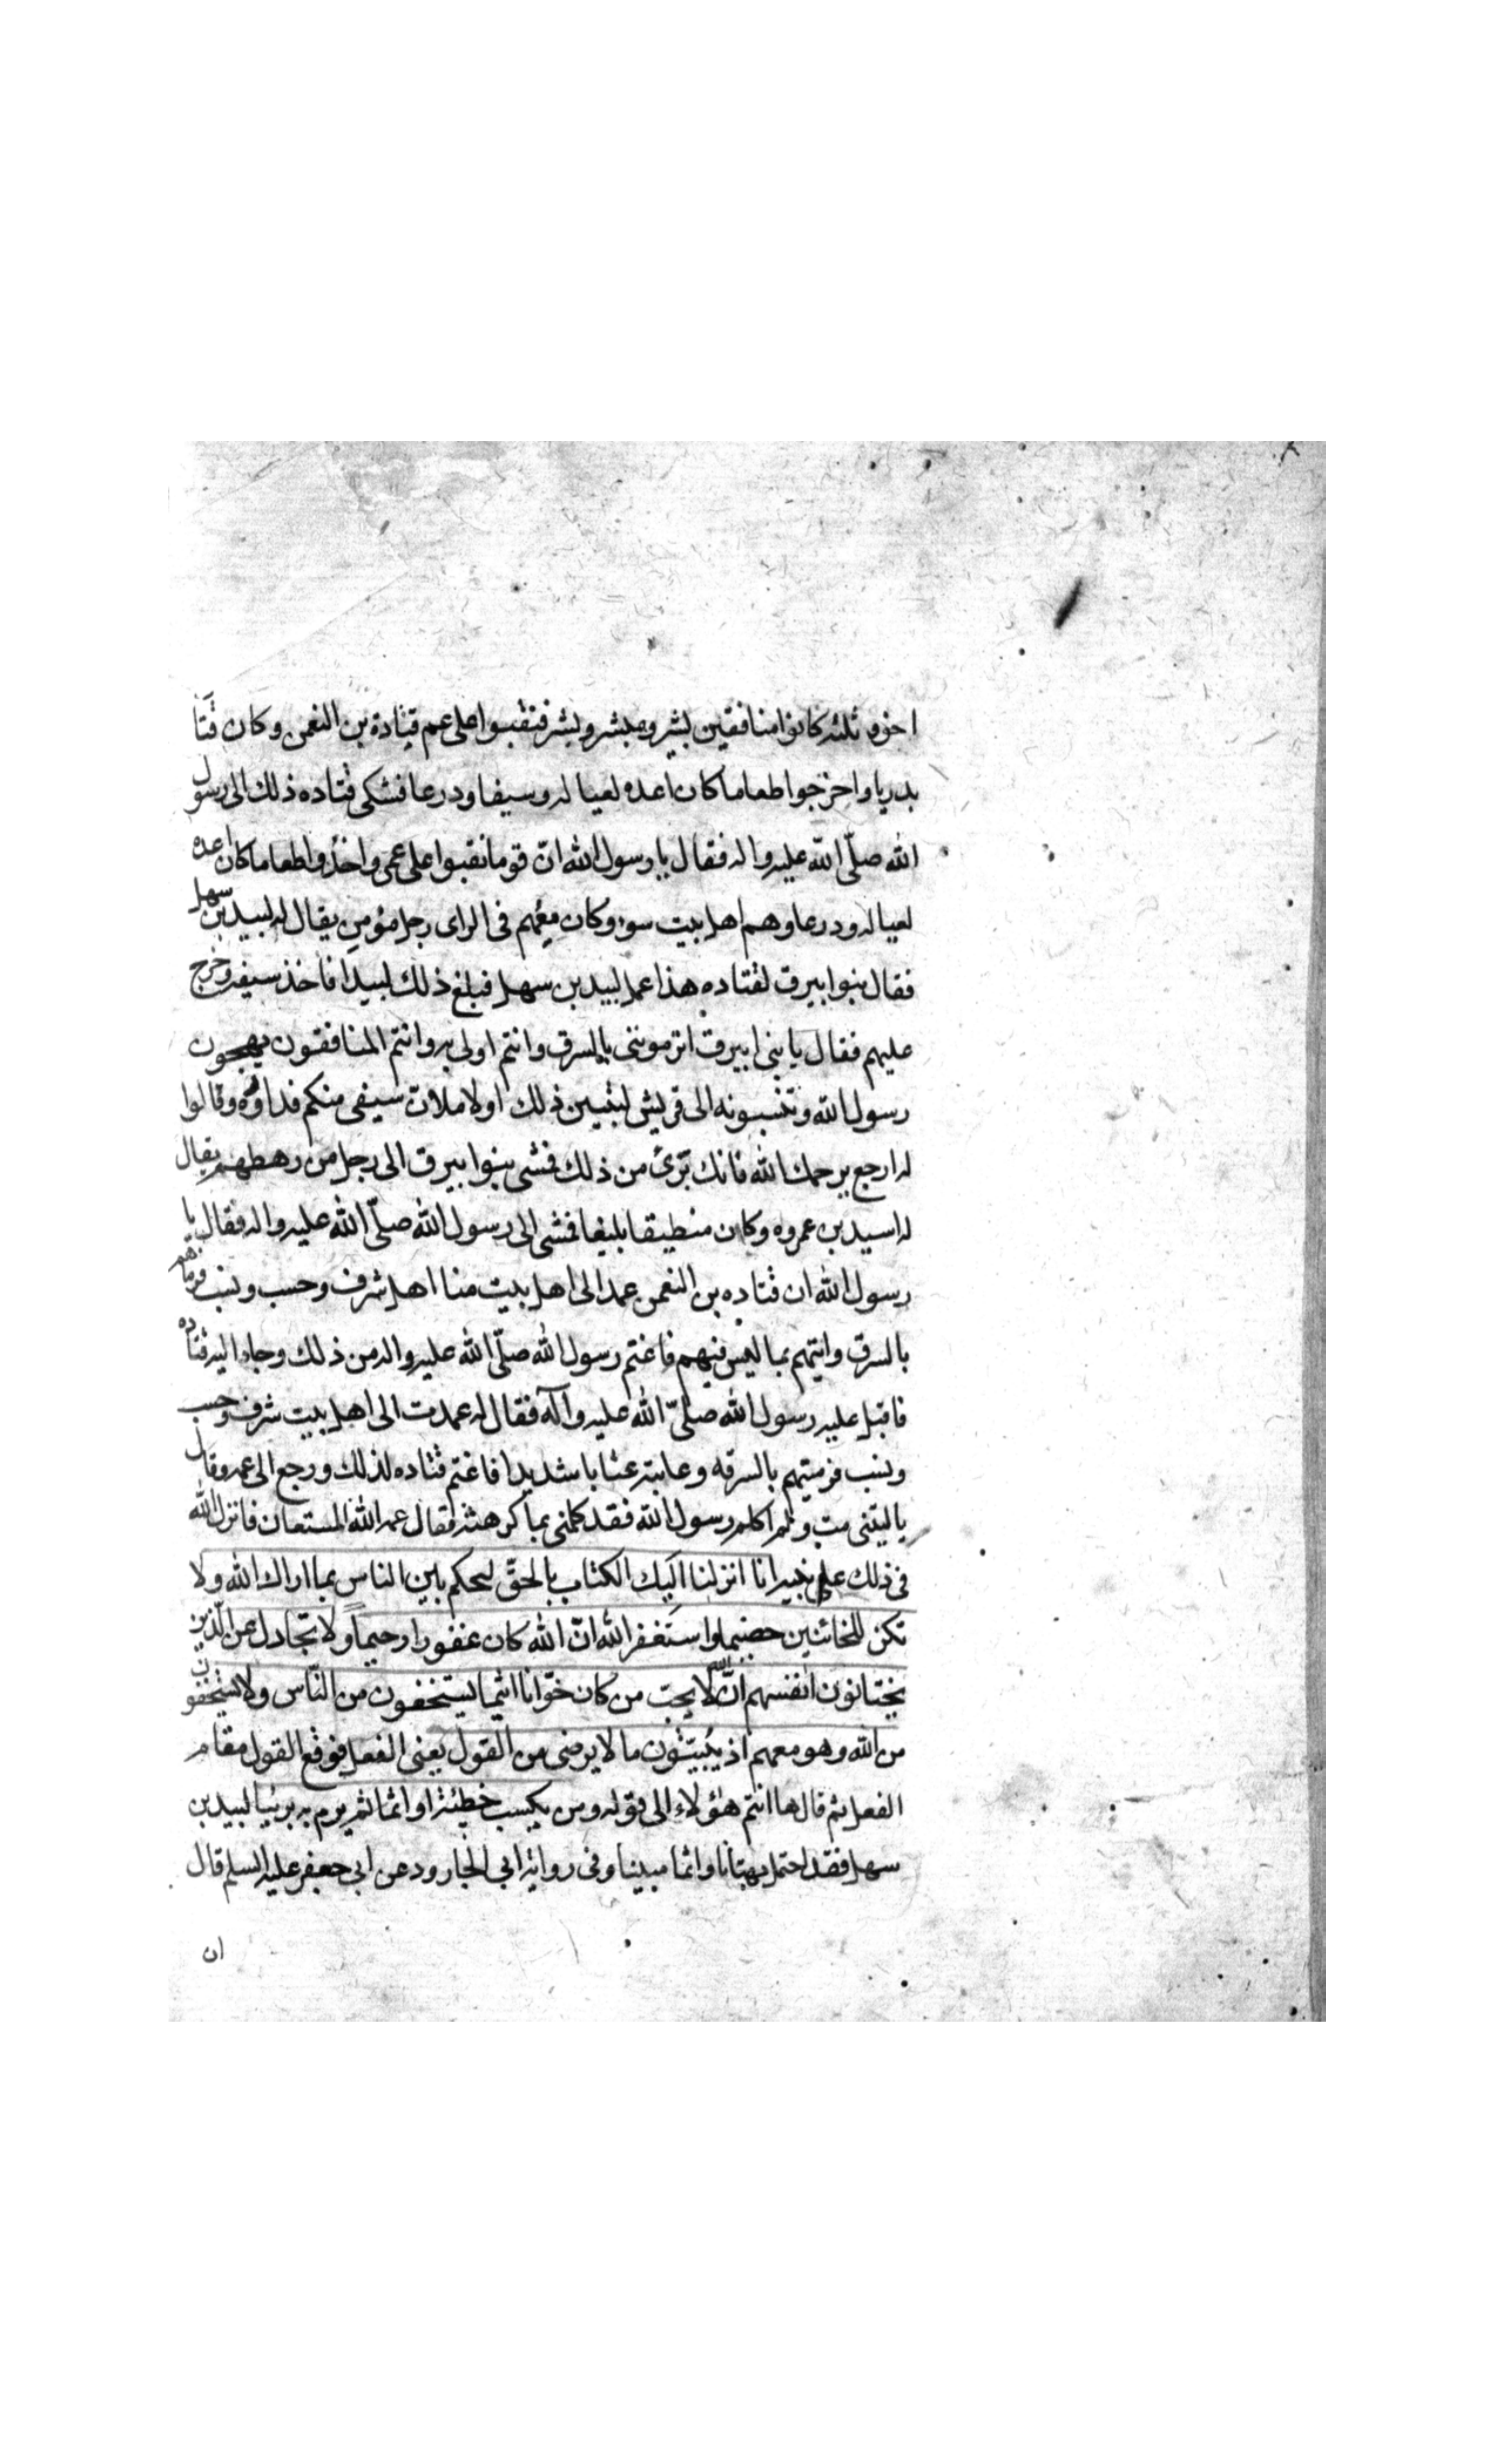 اخوة ثلثه كانوا منافقين بشير ومبشر وبشر فنقبوا على عم قتادة بن النعمن وكان قتا
بدريا واخرجوا طعاما كان اعده لعياله وسيفا ودرعا فشكى قتاده ذلك الى رسول
الله صلّى الله عليه واله فقال يا رسول الله انّ قوما نقبوا على عمى واخذوا طعاما كان اعده
لعياله ودرعا وهم اهل بيت سوء وكان معهم فى الراى رجل مؤمن يقال له لبيد بن سهل
فقال بنوا بيرق لقتاده هذا عمل لبيد بن سهل فبلغ ذلك لبيدا فاخذ سيفه وخرج
عليهم فقال يا بنى ابيرق اترموننى بالسرق وانتم اولى به وانتم المنافقون تهجون
رسول الله وتنسبونه الى قريش لتبينن ذلك او لاملات سيفى منكم فداروه وقالوا
له ارجع يرحمك الله فانك برئ من ذلك فمشى بنوا بيرق الى رجل من رهطهم يقال
له اسيد بن عمروه وكان منطيقا بليغا فمشى الى رسول الله صلّى الله عليه واله فقال يا
رسول الله ان قتاده بن النعمن عمد الى اهل بيت منا اهل شرف وحسب ونسب فرماهم
بالسرق واتهم بما ليس فيهم فاغتم رسول الله صلّى الله عليه واله من ذلك وجاء اليه قتاده
فاقبل عليه رسول الله صلىّ الله عليه وآله فقال له عمدت الى اهل بيت شرف وحسب
ونسب فرميتهم بالسرقه وعاتبه عتابا شديدا فاغتم قتاده لذلك ورجع الى عمه وقال
يا ليتنى مت ولم اكلم رسول الله فقد كلمنى بما كرهته فقال عمه الله المستعان فانزل الله
فى ذلك على نبيه انا انزلنا اليك الكتاب بالحقّ لتحكم بين الناس بما اراك الله ولا
تكن للخائنين خصيما واستغفر الله انّ الله كان غفورا رحيماً ولا تجادل عن الّذين
يختانون انفسهم انّ الله لا يحب من كان خوّانا اثيما يستخفون من النّاس ولا يستخفون
من الله وهو معهم اذ يُبيّتون ما لا يرضى من القول يعنى الفعل فوقع القول مقام
الفعل ثم قال ها انتم هؤلاء الى قوله ومن يكسب خطيئة او اثما ثم يرم به بريئا لبيد بن
سهل فقد احتمل بهتانا واثما مبينا وفى رواية ابي الجارود عن ابي جعفر عليه السلم قال
ان